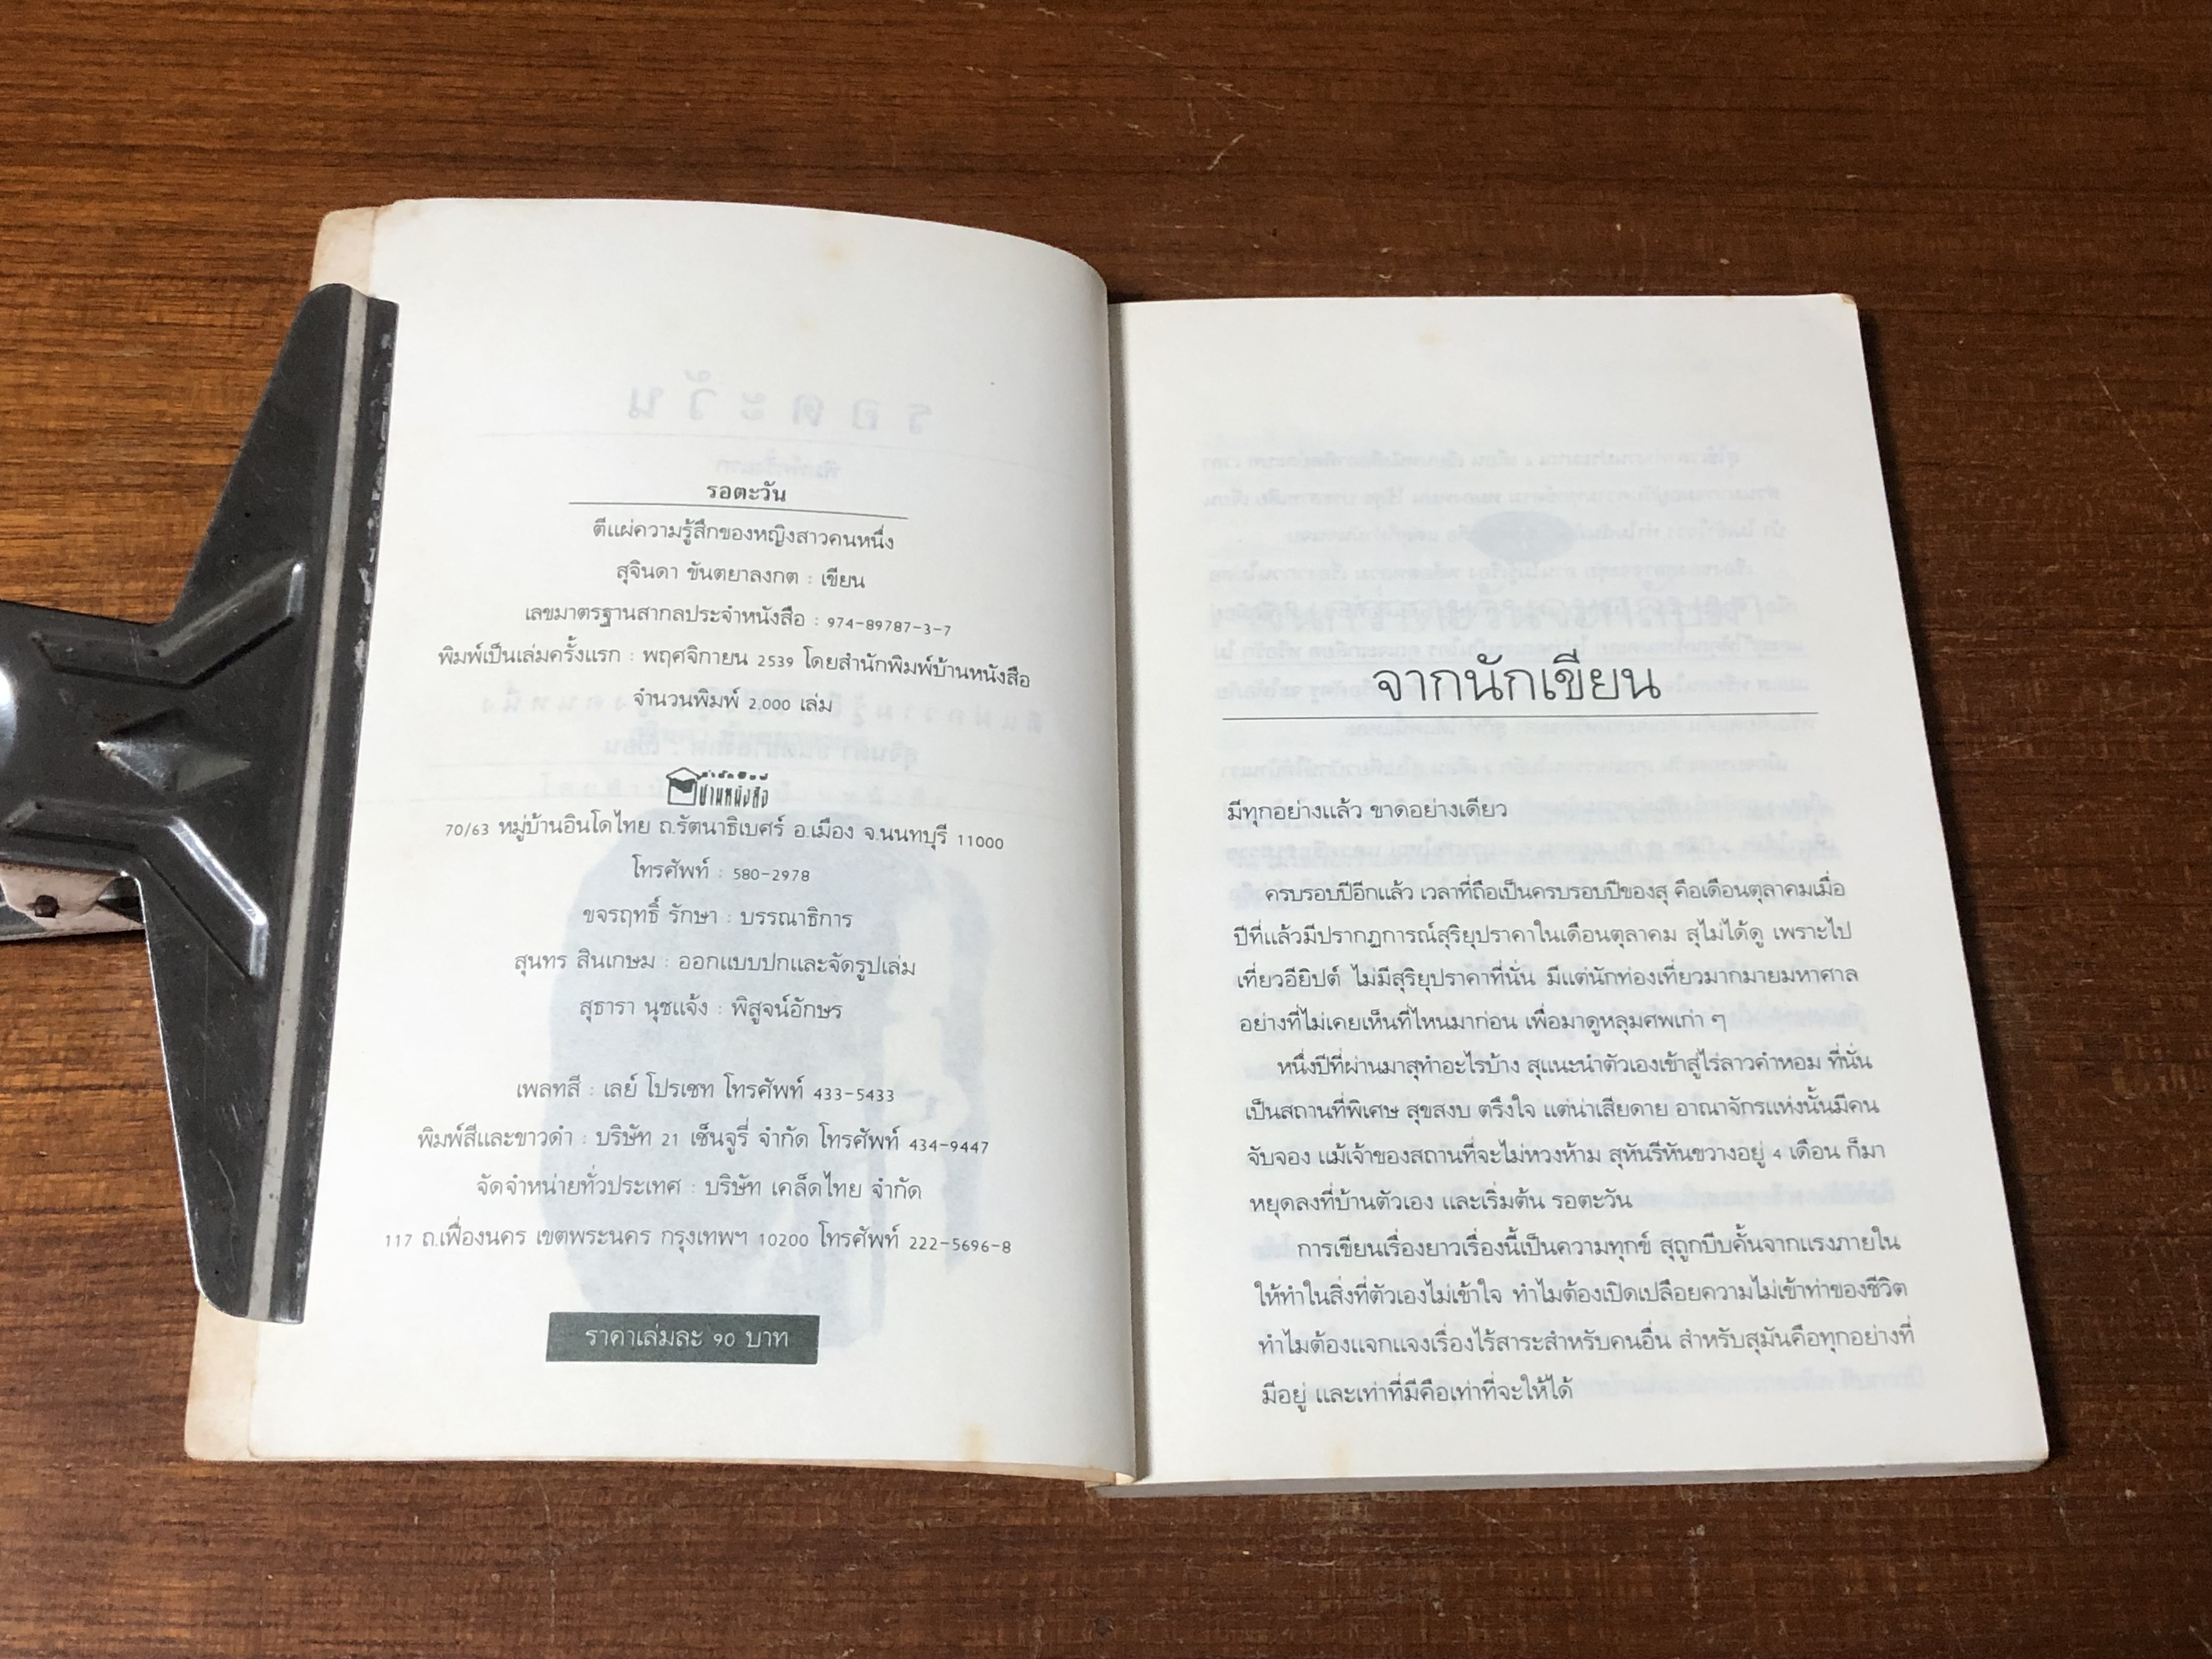 รอตะวัน
ตีแผ่ความรู้สึกของหญิงสาวคนหนึ่ง
สุจินดา ขันตยาลงกต : เขียน
เลขมาตรฐานสากลประจำหนังสือ : 974-89787-3-7
พิมพ์เป็นเล่มครั้งแรก : พฤศจิกายน 2539 โดยสำนักพิมพ์บ้านหนังสือ
จำนวนพิมพ์ 2,000 เล่ม
สำนักพิมพ์
บ้านหนังสือ
70/63 หมู่บ้านอินโดไทย ถ.รัตนาธิเบศร์ อ.เมือง จ.นนทบุรี 11000
โทรศัพท์ : 580-2978
ขจรฤทธิ์ รักษา : บรรณาธิการ
สุนทร สินเกษม : ออกแบบปกและจัดรูปเล่ม
สุธารา นุชแจ้ง : พิสูจน์อักษร
เพลทสี : เลย์ โปรเชท โทรศัพท์ 433-5433
พิมพ์สีและขาวดำ : บริษัท 21 เซ็นจูรี่ จำกัด โทรศัพท์ 434-9447
จัดจำหน่ายทั่วประเทศ : บริษัท เคล็ดไทย จำกัด
117 ถ.เฟื่องนคร เขตพระนคร กรุงเทพฯ 10200 โทรศัพท์ 222-5696-8
ราคาเล่มละ 90 บาท
จากนักเขียน
มีทุกอย่างแล้ว ขาดอย่างเดียว
ครบรอบปีอีกแล้ว เวลาที่ถือเป็นครบรอบปีของสุ คือเดือนตุลาคมเมื่อ
ปีที่แล้วมีปรากฏการณ์สุริยุปราคาในเดือนตุลาคม สุไม่ได้ดู เพราะไป
เที่ยวอียิปต์ ไม่มีสุริยุปราคาที่นั่น มีแต่นักท่องเที่ยวมากมายมหาศาล
อย่างที่ไม่เคยเห็นที่ไหนมาก่อน เพื่อมาดูหลุมศพเก่า ๆ
หนึ่งปีที่ผ่านมาสุทำอะไรบ้าง สุแนะนำตัวเองเข้าสู่ไร่ลาวคำหอม ที่นั่น
เป็นสถานที่พิเศษ สุขสงบ ตรึงใจ แต่น่าเสียดาย อาณาจักรแห่งนั้นมีคน
จับจอง แม้เจ้าของสถานที่จะไม่หวงห้าม สุหันรีหันขวางอยู่ 4 เดือน ก็มา
หยุดลงที่บ้านตัวเอง และเริ่มต้น รอตะวัน
การเขียนเรื่องยาวเรื่องนี้เป็นความทุกข์ สุถูกบีบคั้นจากแรงภายใน
ให้ทำในสิ่งที่ตัวเองไม่เข้าใจ ทำไมต้องเปิดเปลือยความไม่เข้าท่าของชีวิต
ทำไมต้องแจกแจงเรื่องไร้สาระสำหรับคนอื่น สำหรับสุมันคือทุกอย่างที่
มีอยู่ และเท่าที่มีคือเท่าที่จะให้ได้